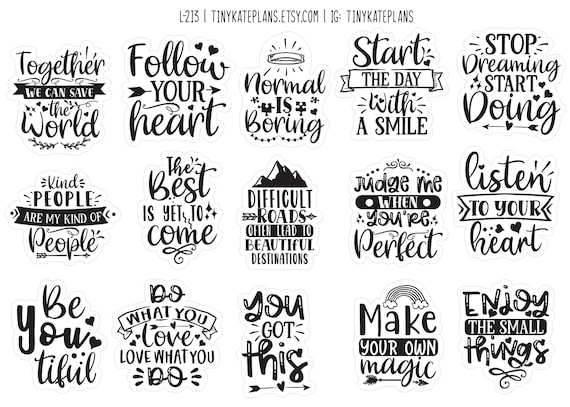 L-213 | TINYKATEPLANS.ETSY.COM | IG: TINYKATEPLANS
Together
WE CAN SAVE
the
World
Follow
YOUR
heart
Normal
IS
Boring
Start
THE DAY
with
A SMILE
STOP
Dreaming
START
Doing
Kind
PEOPLE
ARE MY KIND OF
People
The
Best
IS YET TO
come
DIFFICULT
ROADS
OFTEN LEAD TO
BEAUTIFUL
DESTINATIONS
Judge me
WHEN
you're
Perfect
listen
TO YOUR
heart
Be
You
tiful
DO
WHAT YOU
Love
LOVE WHAT YOU
DO
you
GOT
this
Make
YOUR OWN
magic
ENJOY
THE SMALL
things